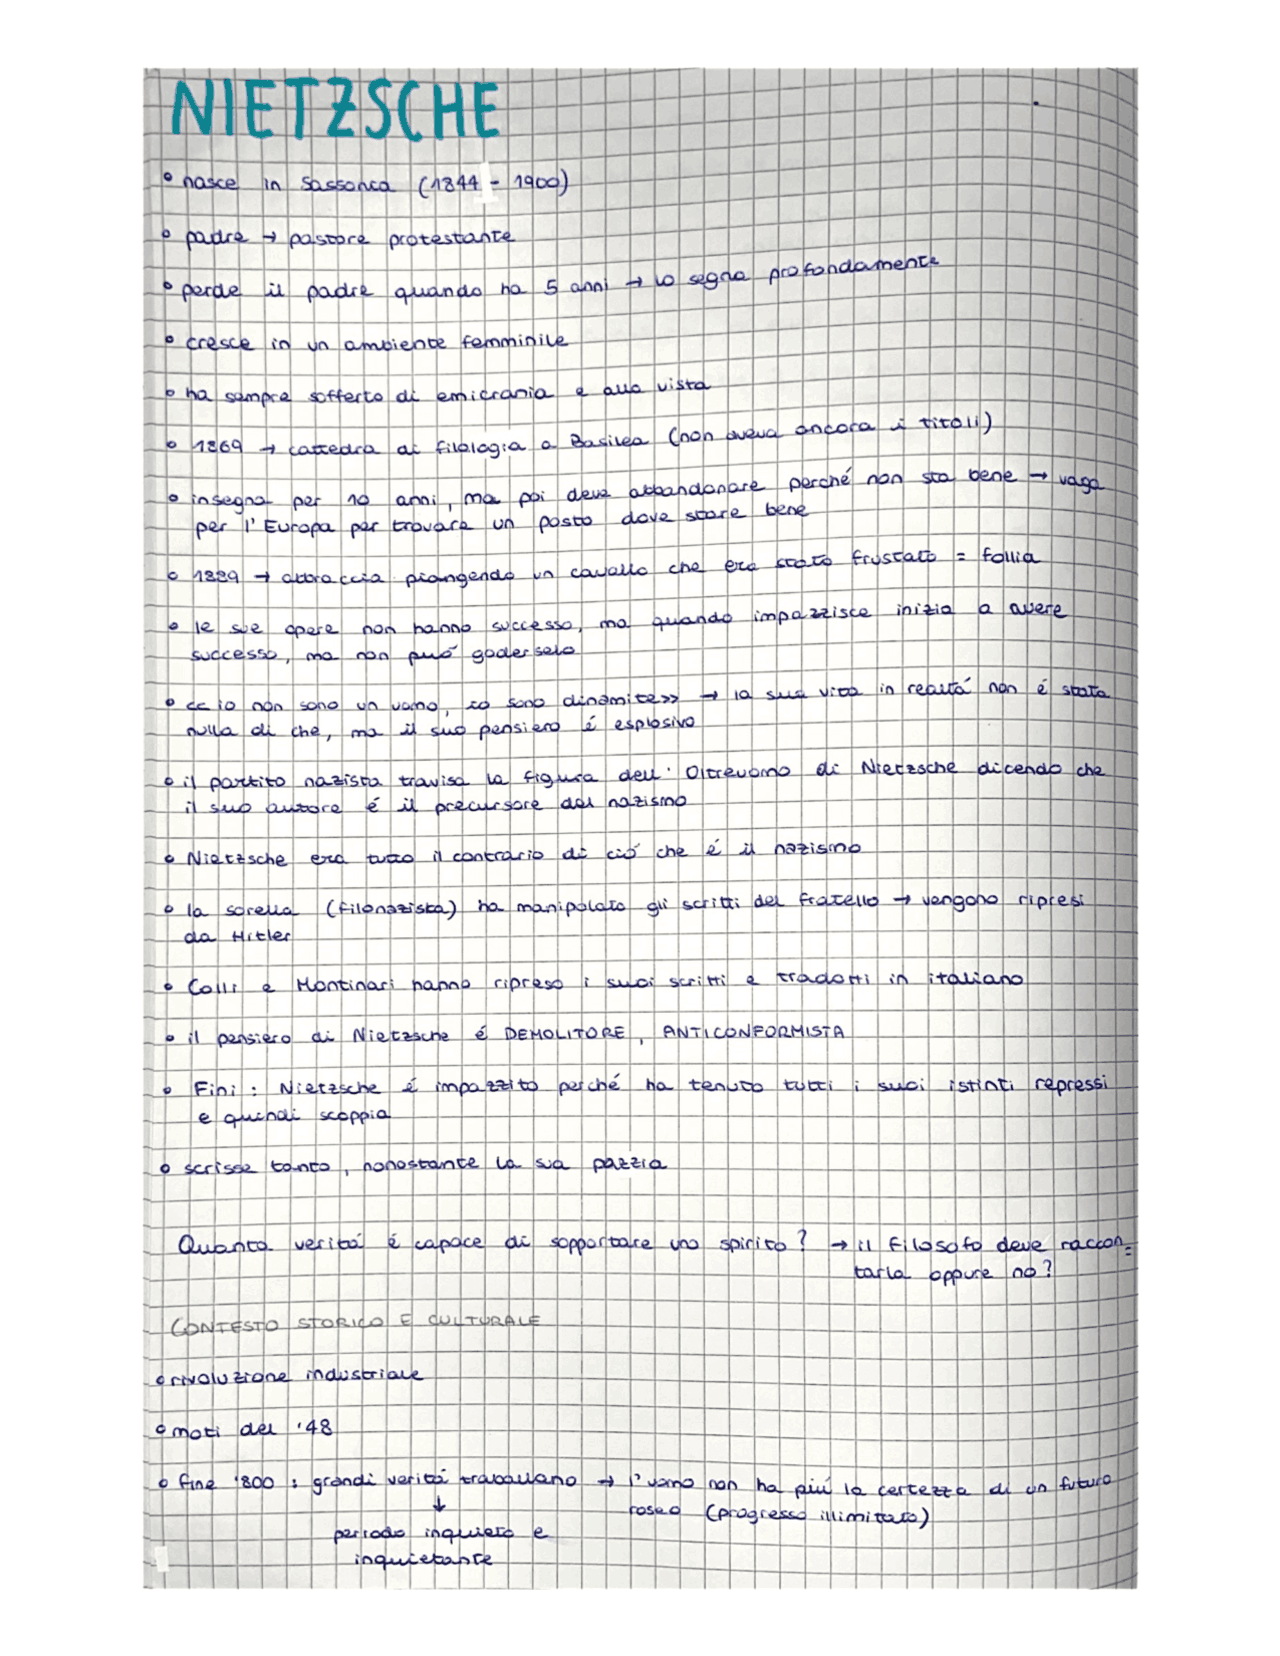 NIETZSCHE
• nasce in Sassonia (1844 - 1900)
• padre → pastore protestante
• perde il padre quando ha 5 anni → lo segna profondamente
• cresce in un ambiente femminile
• ha sempre sofferto di emicrania e alla vista
• 1869 → cattedra di filologia a Basilea (non aveva ancora i titoli)
• insegna per 10 anni, ma poi deve abbandonare perché non sta bene → vaga
per l'Europa per trovare un posto dove stare bene
• 1889 → abbraccia piangendo un cavallo che era stato frustato = follia
• le sue opere non hanno successo, ma quando impazzisce inizia a avere
successo, ma non può goderselo
• <<io non sono un uomo, io sono dinamite>> → la sua vita in realtà non é stata
nulla di che, ma il suo pensiero é esplosivo
• il partito nazista travisa la figura dell' Oltreuomo di Nietzsche dicendo che
il suo autore é il precursore del nazismo
• Nietzsche era tutto il contrario di ciò che é il nazismo
• la sorella (filonazista) ha manipolato gli scritti del fratello → vengono ripresi
da Hitler
• Colli e Montinari hanno ripreso i suoi scritti e tradotti in italiano
• il pensiero di Nietzsche é DEMOLITORE, ANTICONFORMISTA
• Fini: Nietzsche é impazzito perché ha tenuto tutti i suoi istinti repressi
e quindi scoppia
• scrisse tanto, nonostante la sua pazzia
Quanta veritá é capace di sopportare uno spirito? → il filosofo deve raccon=
tarla oppure no?
CONTESTO STORICO E CULTURALE
• rivoluzione industriale
• moti del '48
• fine '800: grandi veritá traballano → l'uomo non ha più la certezza di un futuro
↓ roseo (progresso illimitato)
periodo inquieto e
inquietante